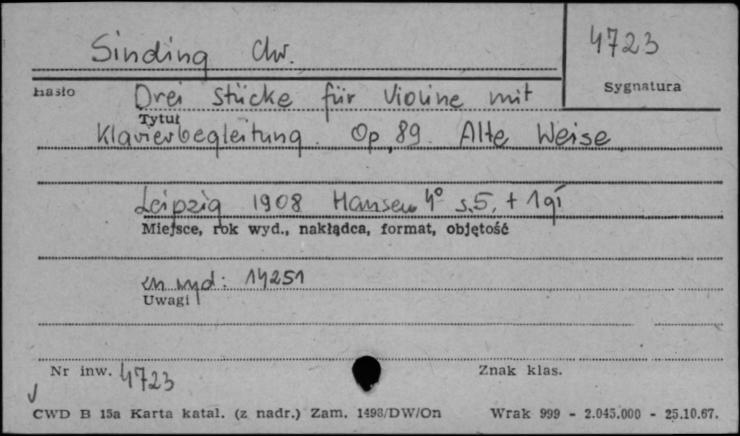 Sinding Chr.
4723
Hasło
Sygnatura
Drei Stücke für Violine mit
Tytuł
Klavierbegleitung. Op. 89. Alte Weise
Leipzig 1908 Hansen 4° s. 5. + 1 gł
Miejsce, rok wyd., nakłądca, format, objętość
zn wyd: 14251
Uwagi
Nr inw. 4723
Znak klas.
CWD B 15a Karta katal. (z nadr.) Zam. 1498/DW/On Wrak 999 - 2.045.000 - 25.10.67.